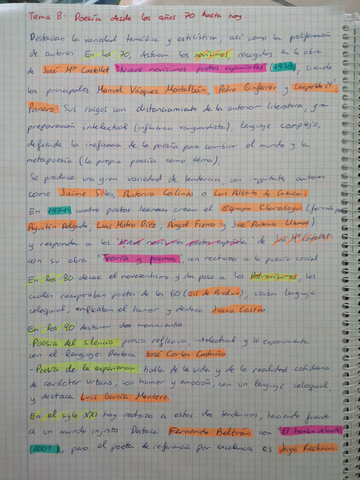 Tema 8- Poesía desde los años 70 hasta hoy
Destacan la variedad temática y estilística, así como la proliferación
de autores. En los 70, destacan los novísimos, recogidos en la obra
de José Mª Castellet "Nueve novísimos poetas españoles" (1970), siendo
los principales Manuel Vázquez Montalbán, Pedro Gimferrer y Leopoldo Mª
Panero. Sus rasgos son distanciamiento de la anterior literatura, gran
preparación intelectual (influencia vanguardista), lenguaje complejo,
defiende la ineficacia de la poesía para cambiar el mundo y la
metapoesía (la propia poesía como tema).
Se produce una gran variedad de tendencias con importantes autores
como Jaime Siles, Antonio Colinas o Luis Alberto de Cuenca.
En cuatro poetas leoneses crean el Equipo Claraboya (formado por
Agustín Delgado, Luis Mateo Díez, Ángel Fierro y José Antonio Llamas)
y responden a los Nueve novísimos poetas españoles de José Mª Castellet
con su obra "Teoría y poemas", con rechazo a la poesía social.
En los 80 decae el novecentismo y da paso a los Postnovísimos, los
cuales recuperaban poetas de los 60 (), usaban lenguaje
coloquial, empleaban el humor y destaca Juana Castro.
En los 90 destacan dos movimientos.
-Poesía del silencio: poesía reflexiva, intelectual y se experimenta
con el lenguaje. Destaca José Carlos Cataño
-Poesía de la experiencia: habla de la vida y de la realidad cotidiana
de carácter urbano, con humor y emoción, con un lenguaje coloquial
y destaca Luis García Montero.
En el siglo XXI hay rechazo a estas dos tendencias, haciendo frente
a un mundo injusto. Destaca Fernando Beltrán con "El hombre de la calle"
2001, pero el poeta de referencia por excelencia es Jorge Riechmann.